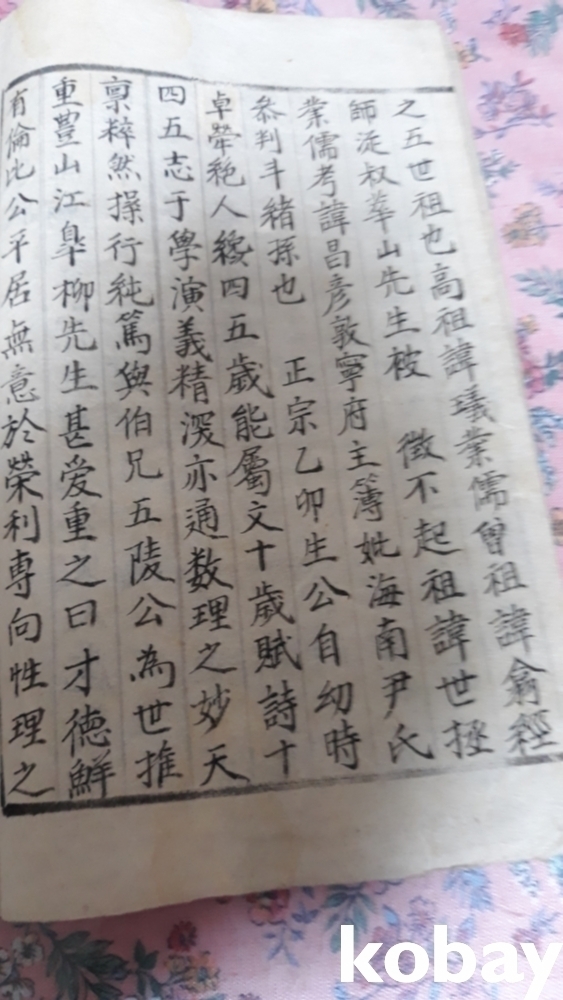 之五世祖也高祖諱璛業儒曾祖諱龠經
師從叔華山先生被 徵不起祖諱世拯
業儒考諱昌彦敦寧府主簿妣海南尹氏
叅判斗緒孫也 正宗乙卯生公自幼時
卓犖絶人纔四五歲能屬文十歲賦詩十
四五志于學演義精深亦通数理之妙天
稟粹然操行純篤與伯兄五陵公為世推
重豊山江皐柳先生甚爱重之曰才德鮮
有倫比公平居無意於榮利専向性理之
kobay